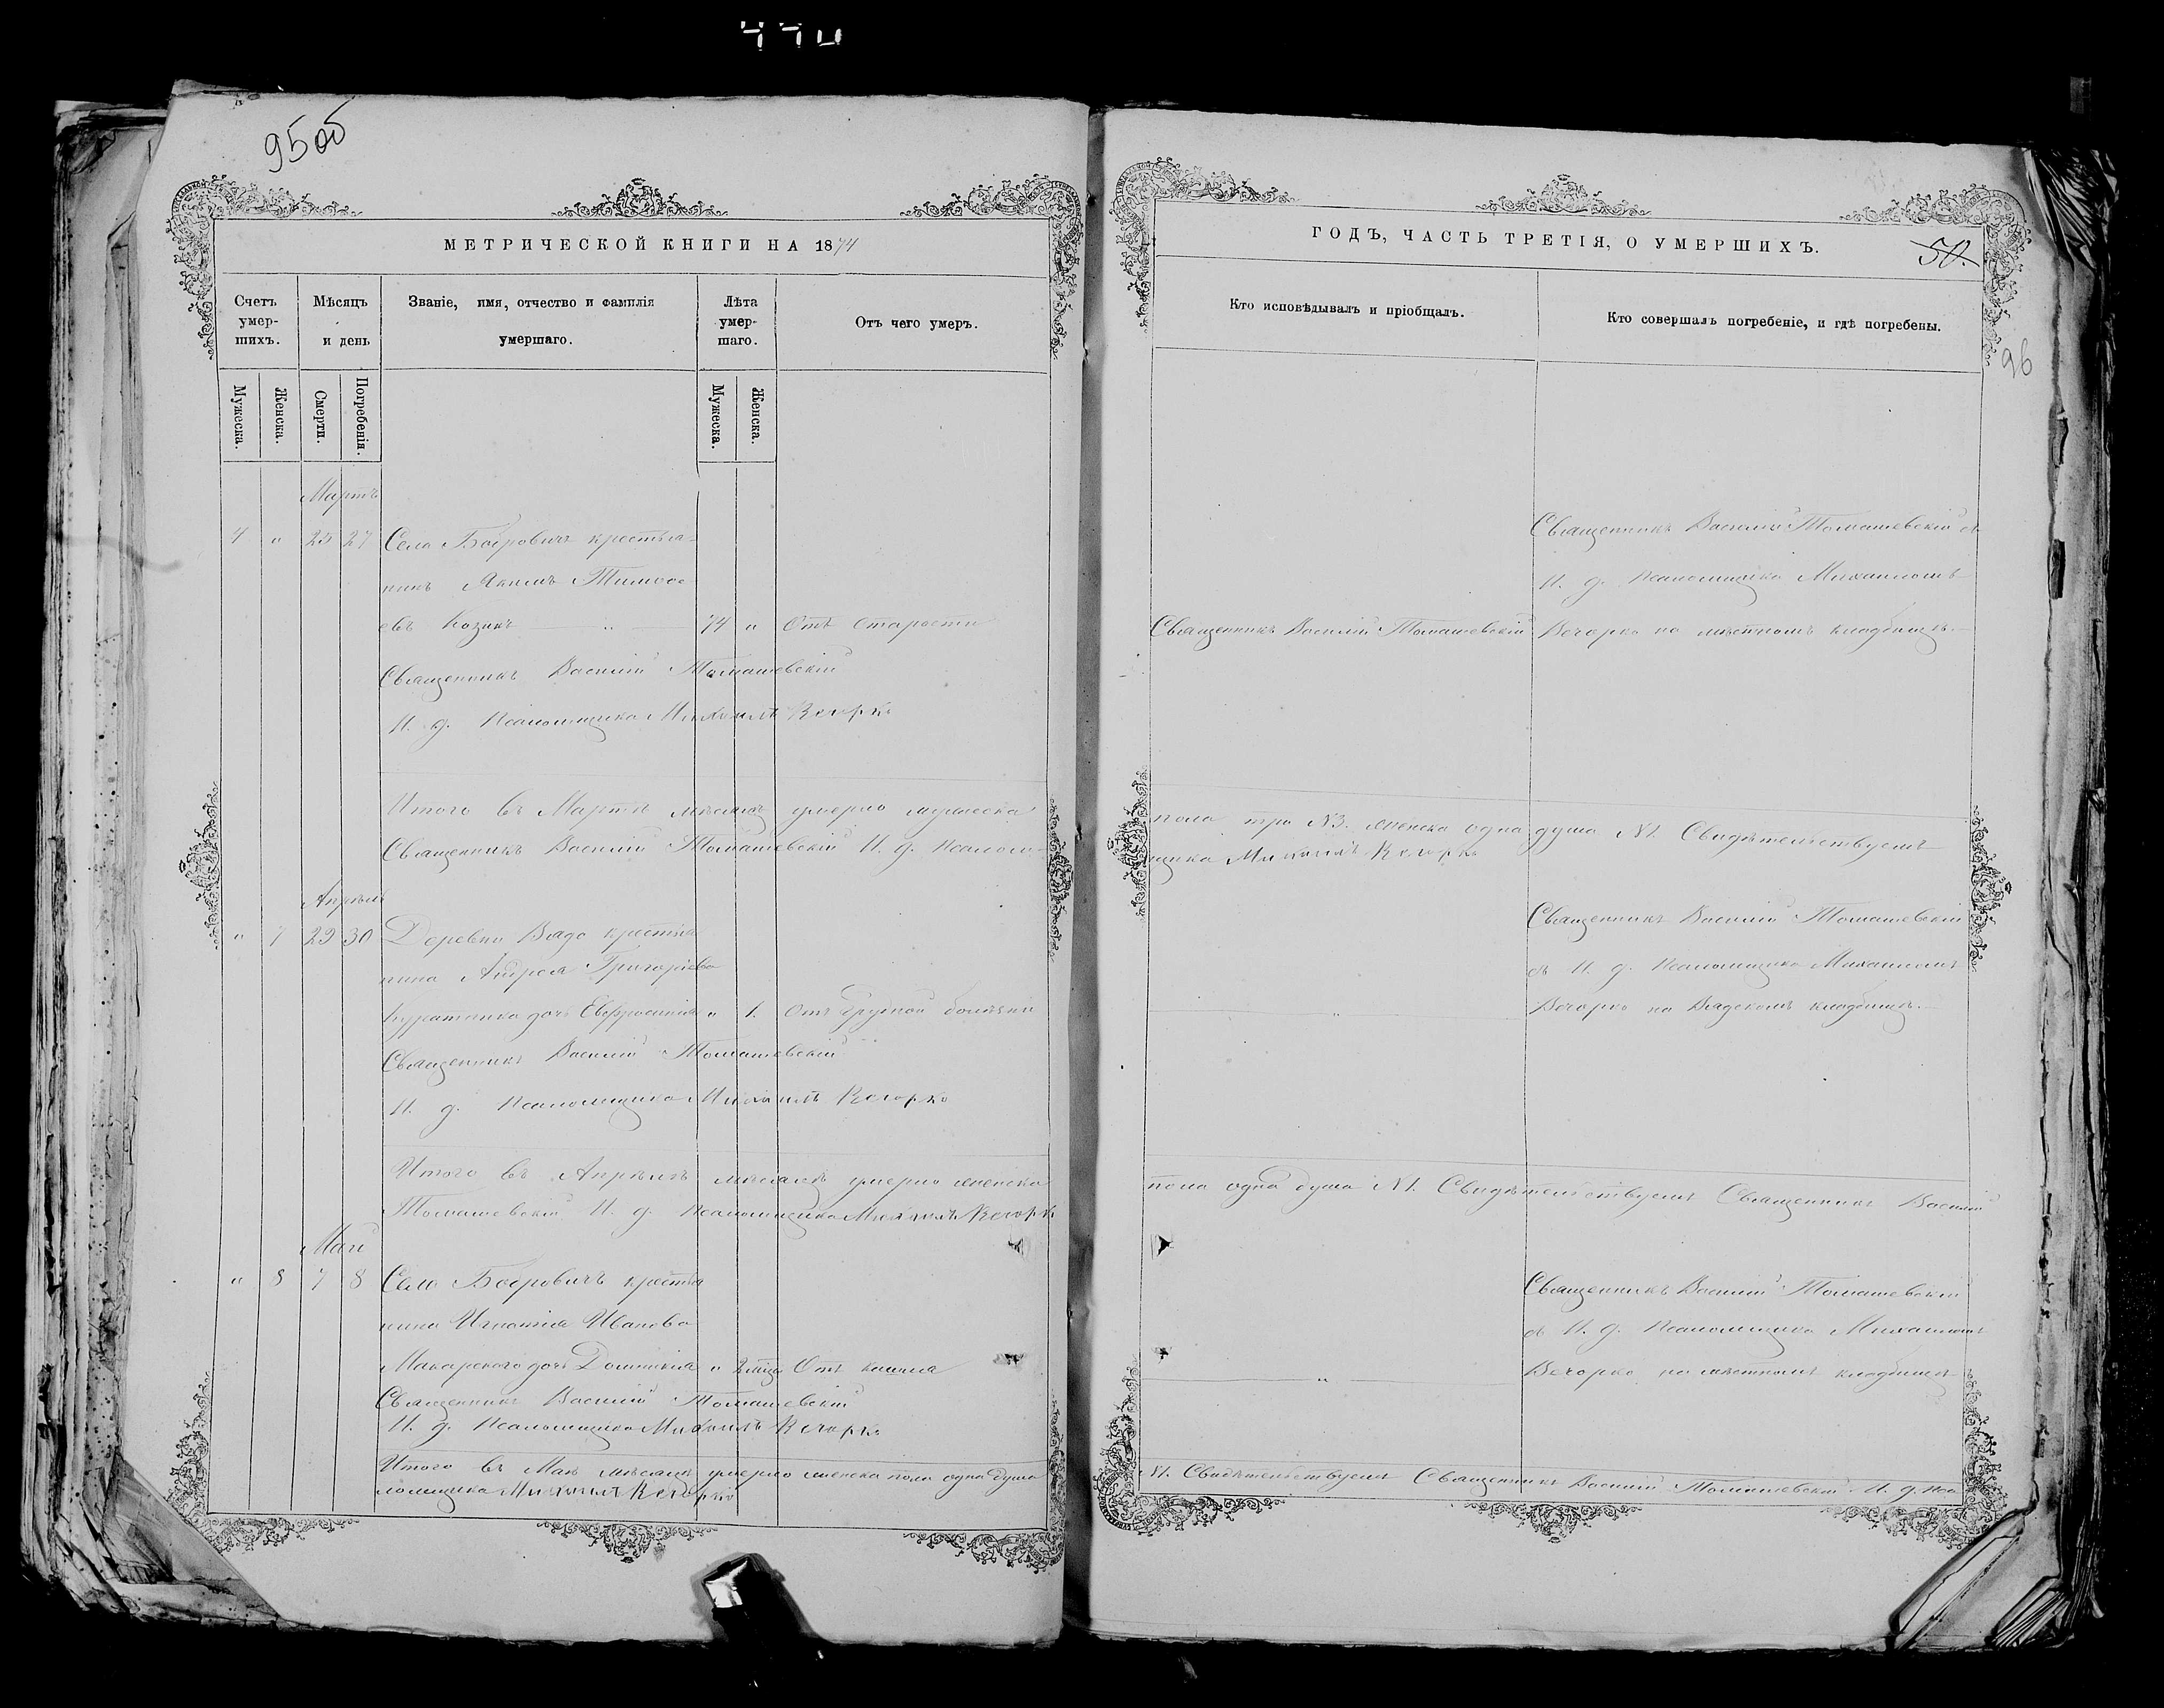 95 об
МЕТРИЧЕСКОЙ КНИГИ НА 1874
Счетъ умер-шихъ.
Мѣсяцъ и день
Званіе, имя, отчество и фамилія умершаго.
Лѣта умер-шаго.
Отъ чего умеръ.
Мужеска.
Женска.
Смерти.
Погребенія.
Мужеска.
Женска.
Мартъ
4 " 25 27 Села Боеровичъ крестья-
нинъ Якимъ Тимофе
евъ Козикъ — " — 74 " Отъ старости
Священникъ Василій Томашевскій
И. д. Псаломщика Михаилъ Вечорко
Итого въ Мартѣ мѣсяцѣ умерло мужеска
Священникъ Василій Томашевскій И. д. Псалом-
Апрѣль
" 7 29 30 Деревни Вядо крестья
нина Андрея Григорьева
дочь Евфросинія " 1. Отъ грудной болѣзни
Священникъ Василій Томашевскій
И. д. Псаломщика Михаилъ Вечорко
Итого въ Апрѣлѣ мѣсяцѣ умерло женска
Томашевскій И. д. Псаломщика Михаилъ Вечорко
Май
" 8 7 8 Села Боеровичъ крестья
нина Игнатія Иванова
Макарского дочь Домникія " 2 мѣца Отъ кашля
Священникъ Василій Томашевскій
И. д. Псаломщика Михаилъ Вечорко
Итого въ Маѣ мѣсяцѣ умерло женска пола одна душа
ломщика Михаилъ Вечорко
ГОДЪ, ЧАСТЬ ТРЕТІЯ, О УМЕРШИХЪ.
50.
96
Кто исповѣдывалъ и пріобщалъ.
Кто совершалъ погребеніе, и гдѣ погребены.
Священникъ Василій Томашевскій съ
И. д. Псаломщика Михаиломъ
Священникъ Василій Томашевскій Вечорко на мѣстномъ кладбищѣ.—
пола три №3. женска одна душа №1. Свидѣтельствуемъ
щика Михаилъ Вечорко
Священникъ Василій Томашевскій
съ И. д. Псаломщика Михаиломъ
— " — Вечорко на Вядскомъ кладбищѣ.—
пола одна душа №1. Свидѣтельствуемъ Священникъ Василій
Священникъ Василій Томашевскій
съ И. д. Псаломщика Михаиломъ
— " — Вечорко на мѣстномъ кладбищѣ
№1. Свидѣтельствуемъ Священникъ Василій Томашевскій И. д. Пса